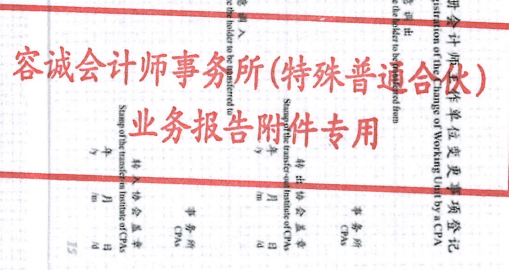 容诚会计师事务所(特殊普通合伙)
业务报告附件专用
册会计师工作单位变更事项登记
istration of the Change of Working Unit by a CPA
意调出
ee the holder to be transferred from
事务所
CPAs
转出协会盖章
Stamp of the transfer-out Institute of CPAs
年 月 日
/y /m /d
意调入
ee the holder to be transferred to
事务所
CPAs
转入协会盖章
Stamp of the transfer-in Institute of CPAs
年 月 日
/y /m /d
15